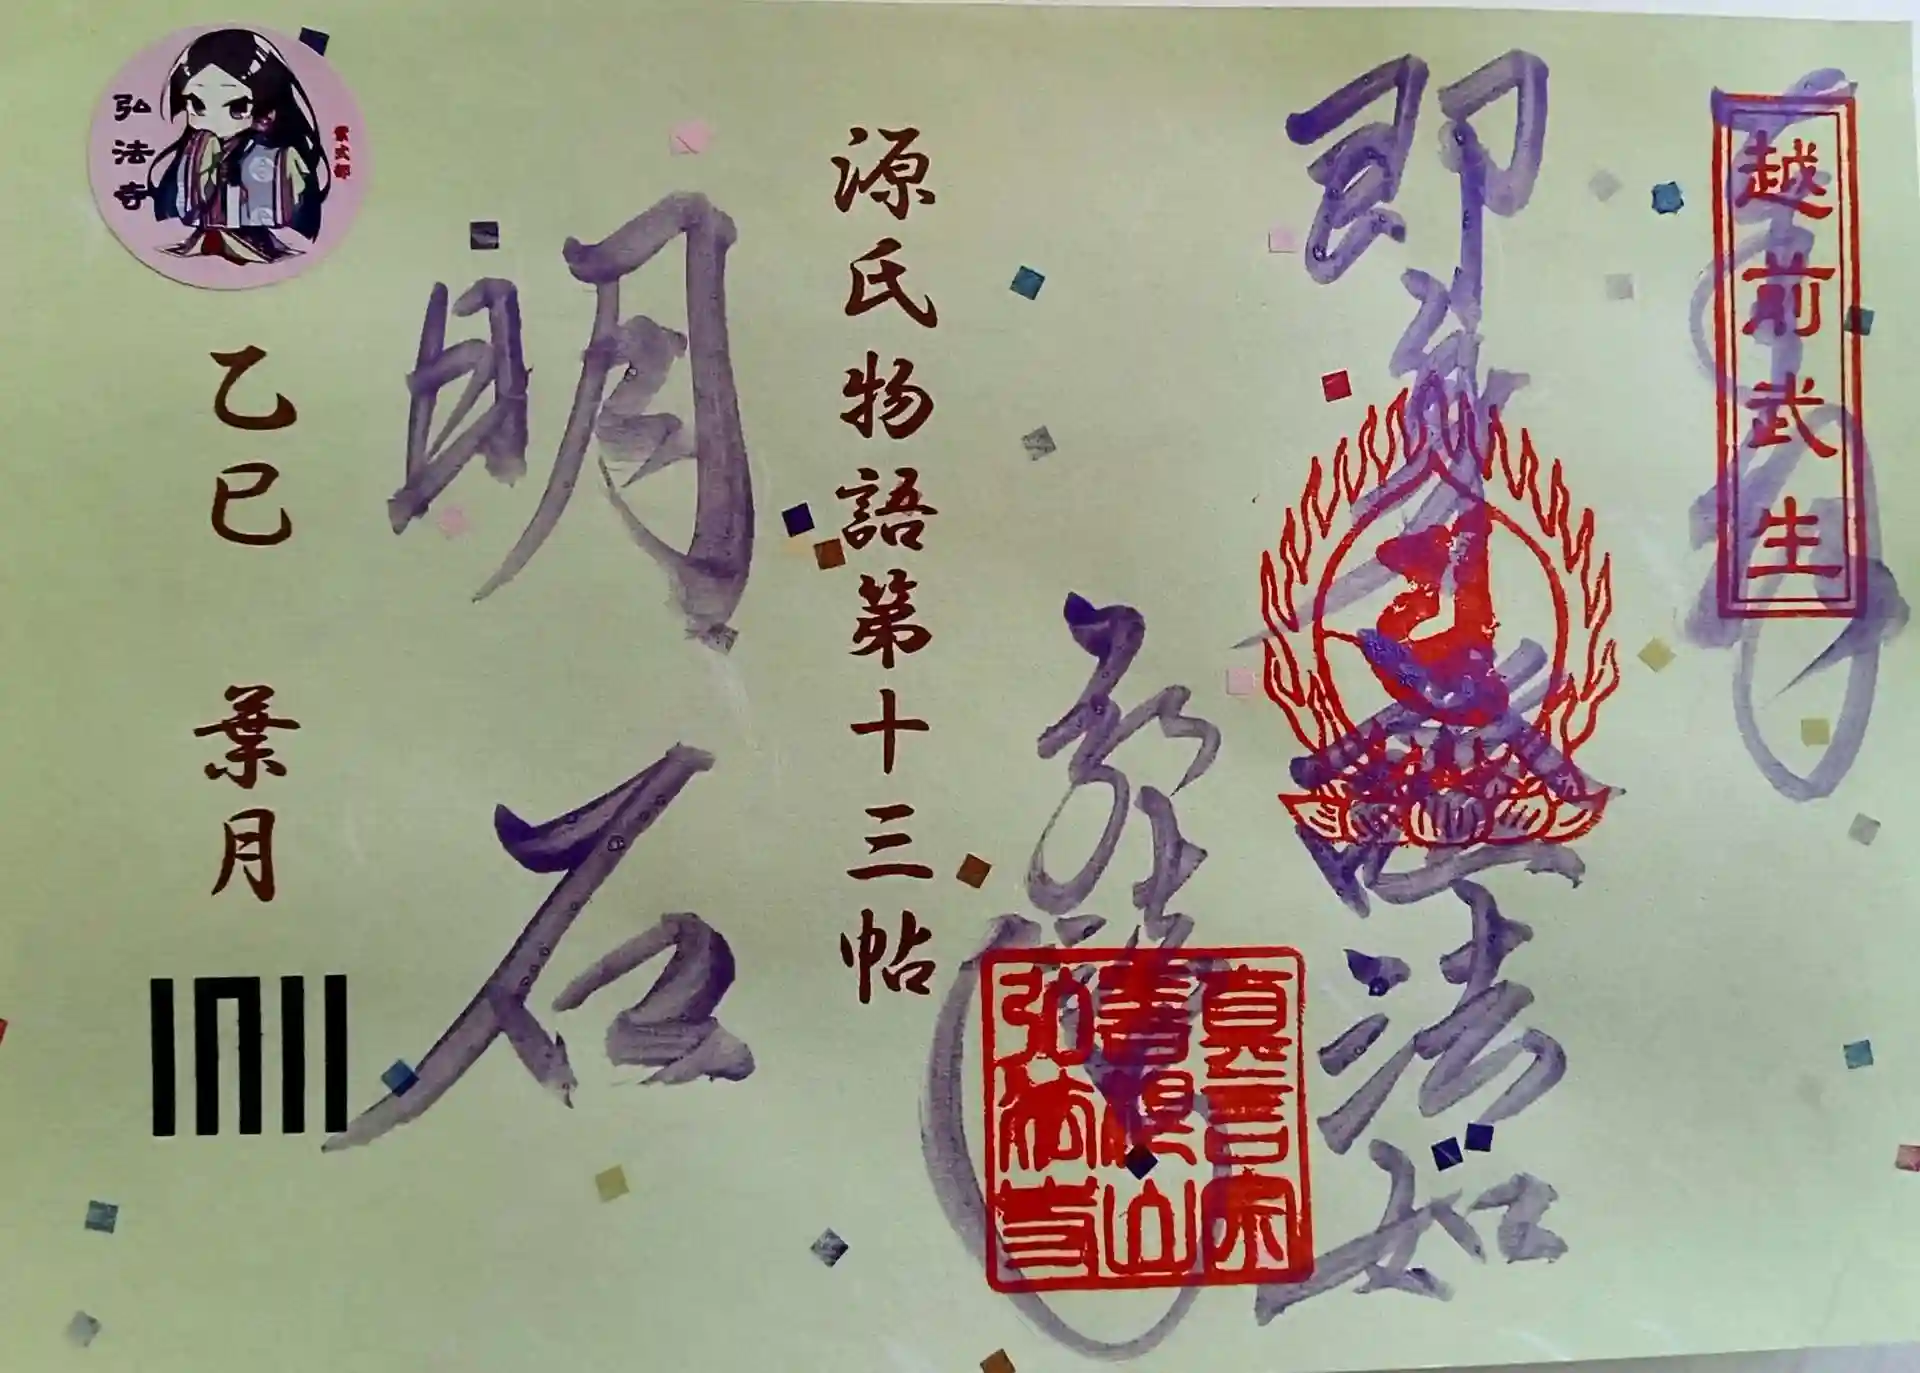 越前武生
即身証法如
真言宗
弘法寺
源氏物語第十三帖
明石
弘法寺
紫式部
乙巳 葉月